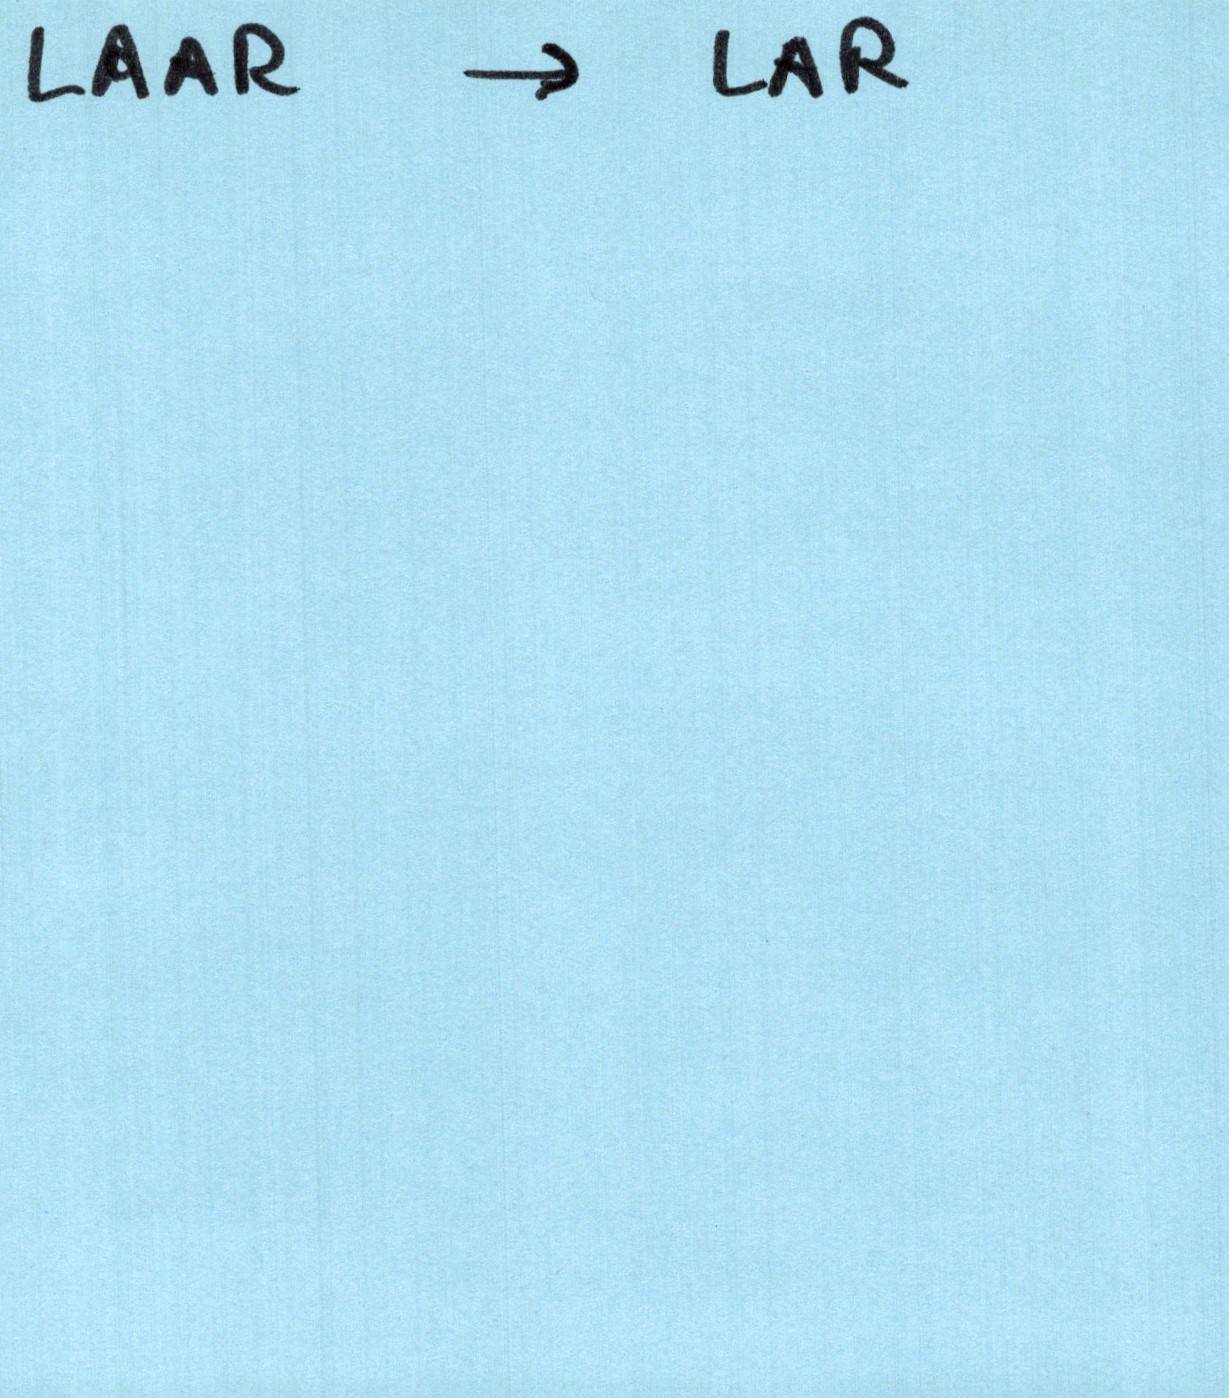 LAAR → LAR